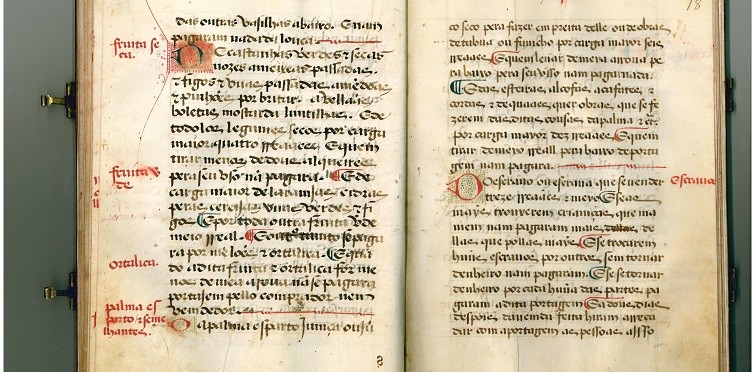 das outras vasilhas abaixo. E nam
pagaram nada da louça.
fruita se
ca.
De castanhas verdes & secas
nozes ameixas passadas
& figos & uvas passadas amẽdoas
& pinhões por britar. avellãas
boletas mostarda lentilhas. E de
todolos legumes secos por carga
maior quatro reaaes. E quem
tirar menos de dous alqueires
pera seu uso nã pagara.
fruita v
de
¶ E de
carga maior de laranjas cidras
peras cerejas uvas verdes & fi
gos ¶ E por toda outra fruita vde
meio real. ¶ E outro tanto se paga
ra por melões & ortaliça. ¶ E qñ
ortaliça.
do a dita fruita & ortaliça for me
nos de mea arroua nã se pagara
portajem pello comprador nem
vendedor.
palma es
parto & seme
lhantes.
Da palma esparto junça ou jũ
18
co seco pera fazer empreita delle ou de obras
de tabua ou funcho por carga mayor seis
reaaes. ¶ E quem levar de mea arroua pe
ra baixo pera seu uso nam pagara nada.
¶ E das esteiras alcofas açafates &
cordas & de quaaes quer obras que se fe
zerem das ditas cousas da palma & etc.
por carga mayor dez reaaes. ¶ E quem
tirar de meo real pera baixo de porta
gem nam pagara.
Do escravo ou escrava que se vender
Escravos
treze reaaes & meyo ¶ E se as
mayes trouverem crianças que ma
mem nam pagaram mais
dellas que pollas mayes ¶ E se trocarem
hũus escravos por outros sem tornar
dinheiro nam pagaram ¶ E se se tornar
dinheiro por cada hũa das partes pa
garam a dita portagem ¶ E a dous dias
despois da venda feita hiram arreca
dar com a portagem as pessoas a isso